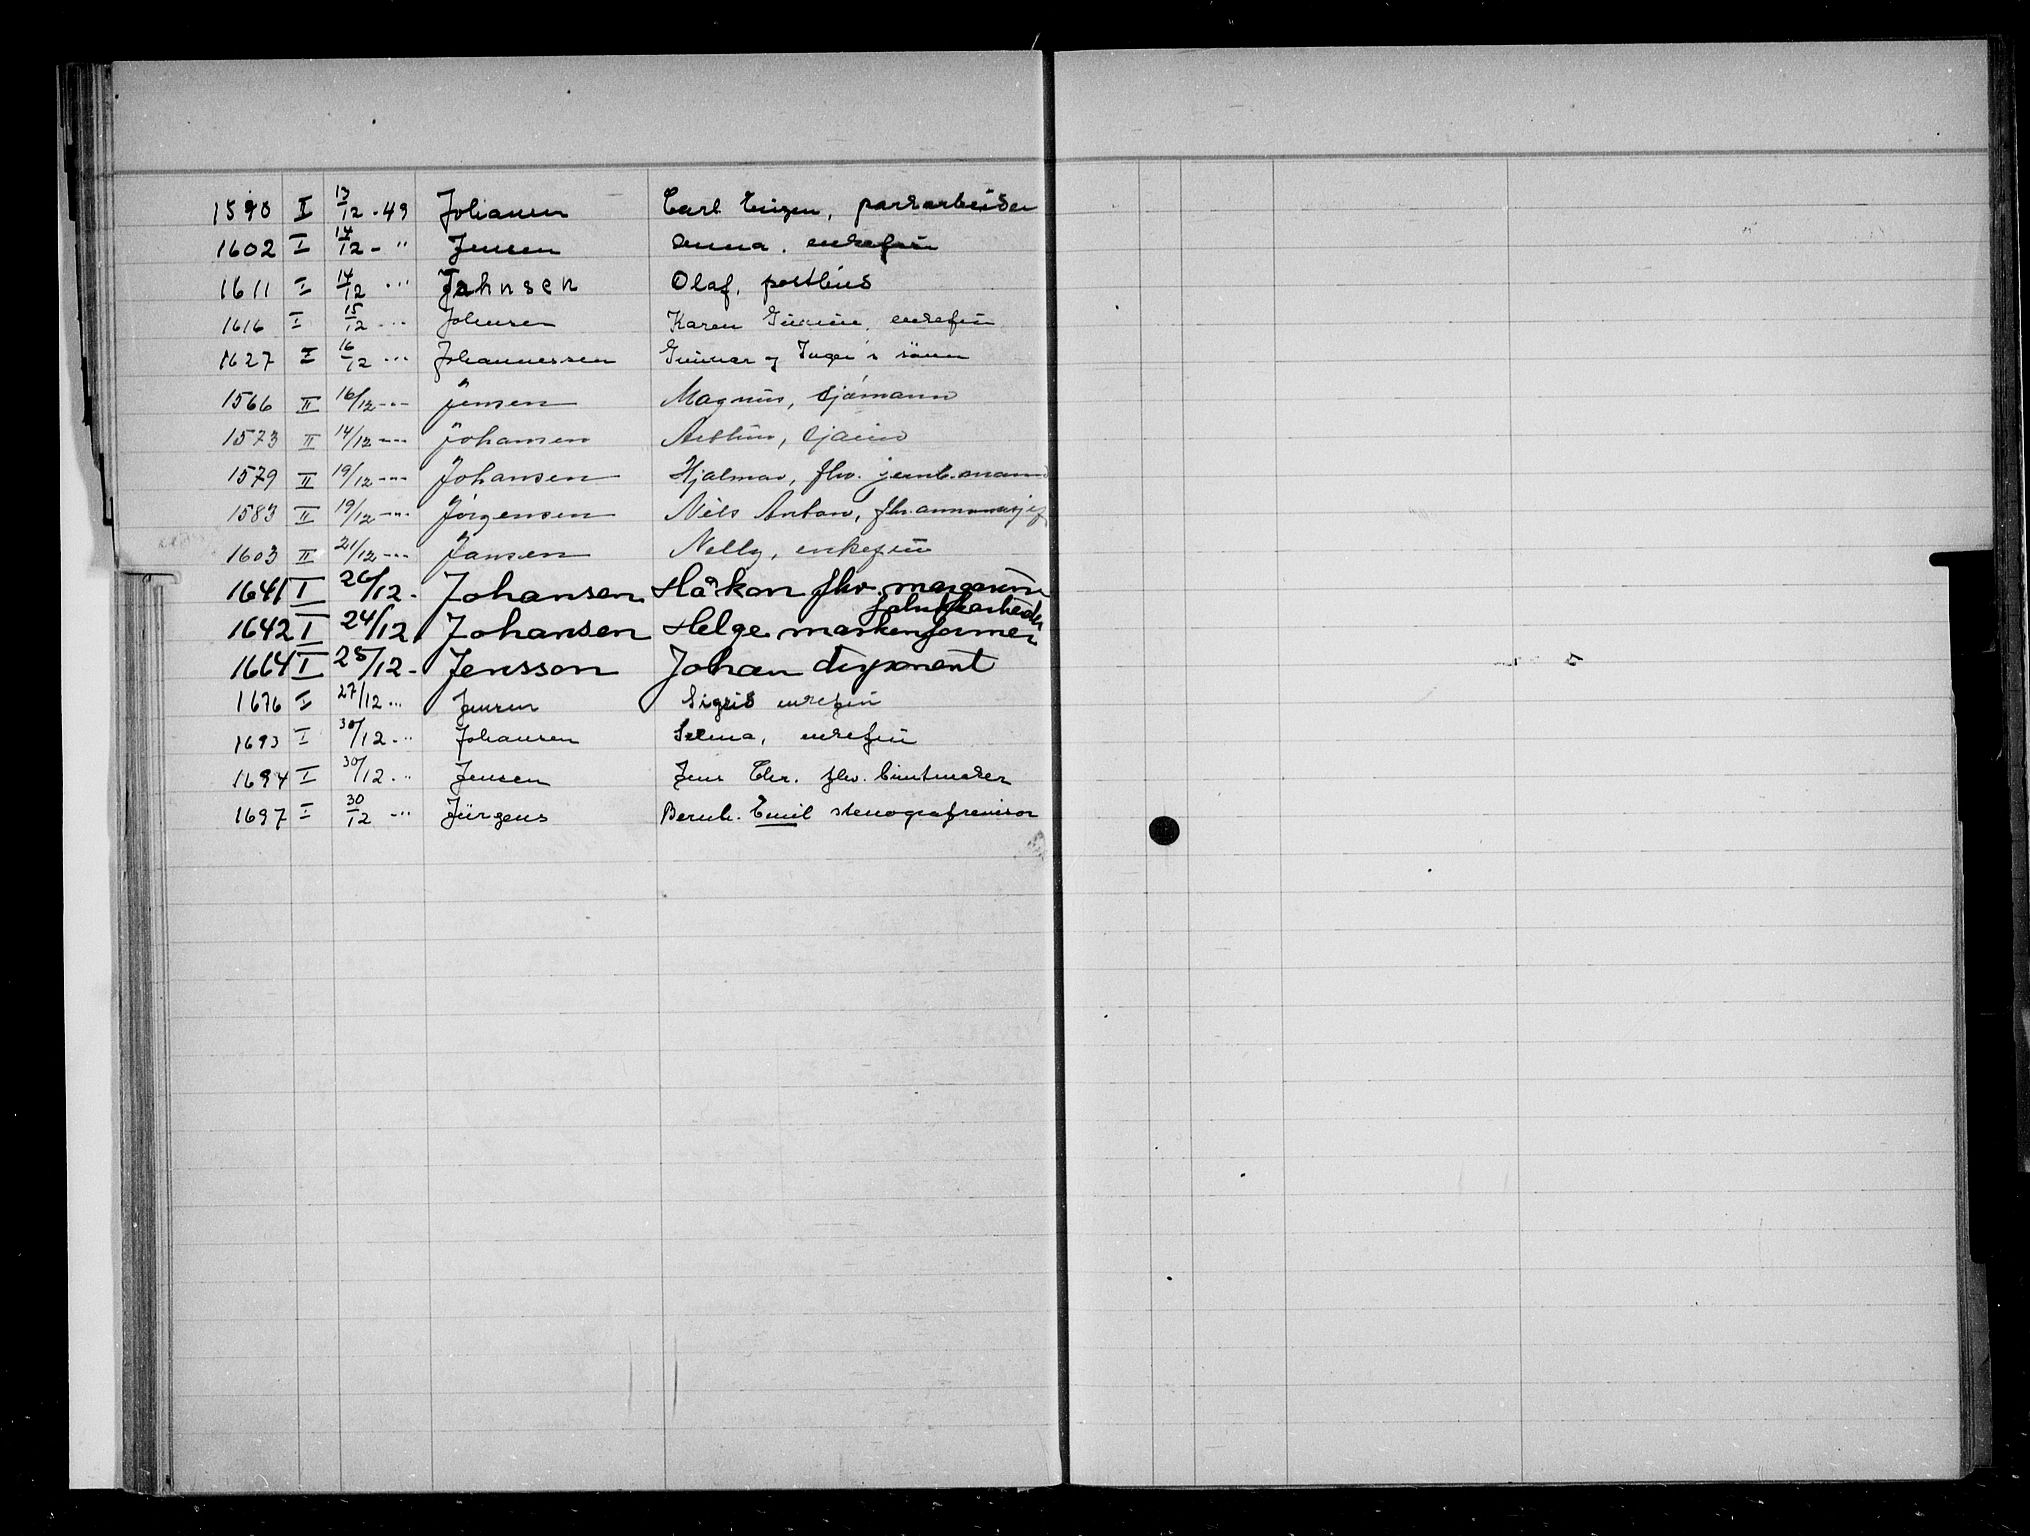 1590 II 13/12 - 49 Johansen Carl Eugen, parkarbeider
1602 I 14/12 - " Jensen Anna, enkefru
1611 I 14/12 - " Jahnsen Olaf, postbud
1616 I 15/12 - " Johnsen Karen Gurine, enkefru
1627 I 16/12 - " Johannessen Gunnar og Inger's sönn
1566 II 16/12 - " Jensen Magnus, sjömann
1573 II 14/12 - " Johansen
1579 II 19/12 - " Johansen Hjalmar, fhv. jernb.mann
1583 II 19/12 - " Jörgensen Nils Anton, fhv.
1603 II 21/12 - " Jansen Nelly, enkefru
1641 I 20/12. Johansen Håkon fhv. margarin
fabrikkarbeider
1642 I 24/12. Johansen Helge maskinformer
1664 I 28/12. Jensson Johan disponent
1676 I 27/12 - " Jensen Sigrid enkefru
1693 I 30/12 - " Johansen Selma, enkefru
1694 I 30/12 - " Jensen Jens Chr. fhv. buntmaker
1697 I 30/12 - " Jürgens Bernh. Emil stenografrevisor